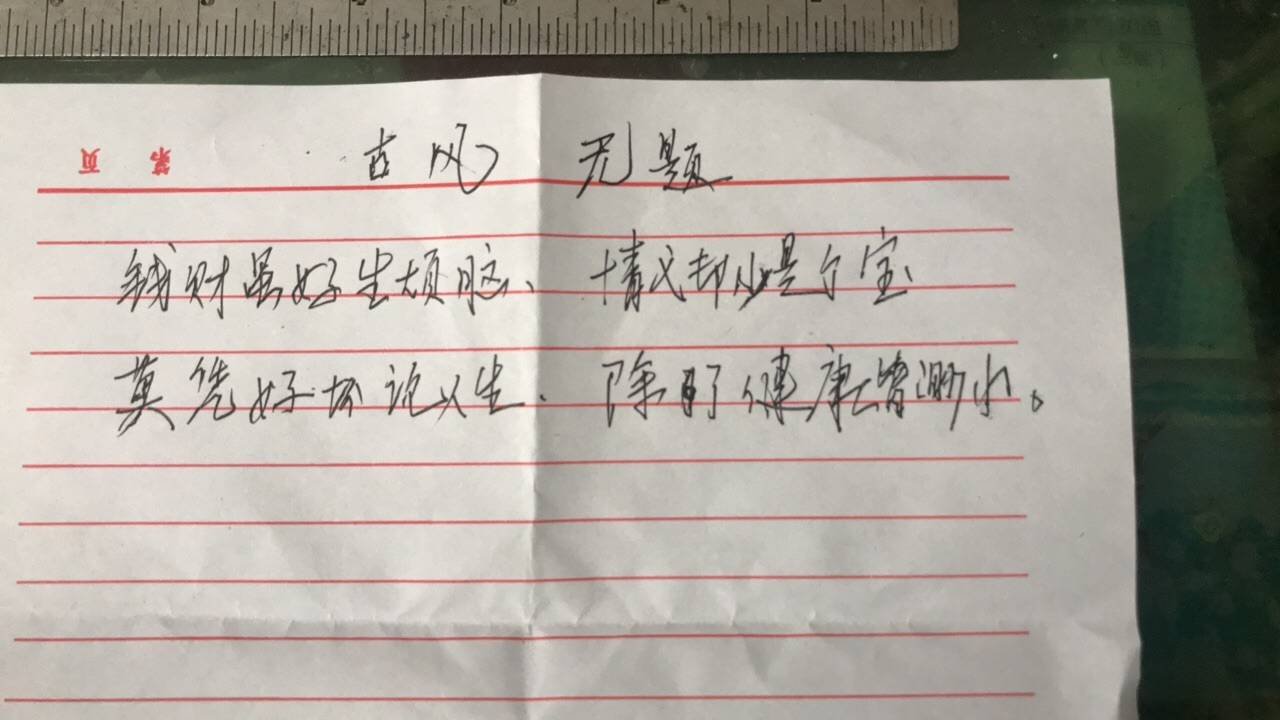 第 页
古风 无题
钱财虽好生烦脑、情义却必是个宝
莫凭好坏论人生、除了健康皆渺小。